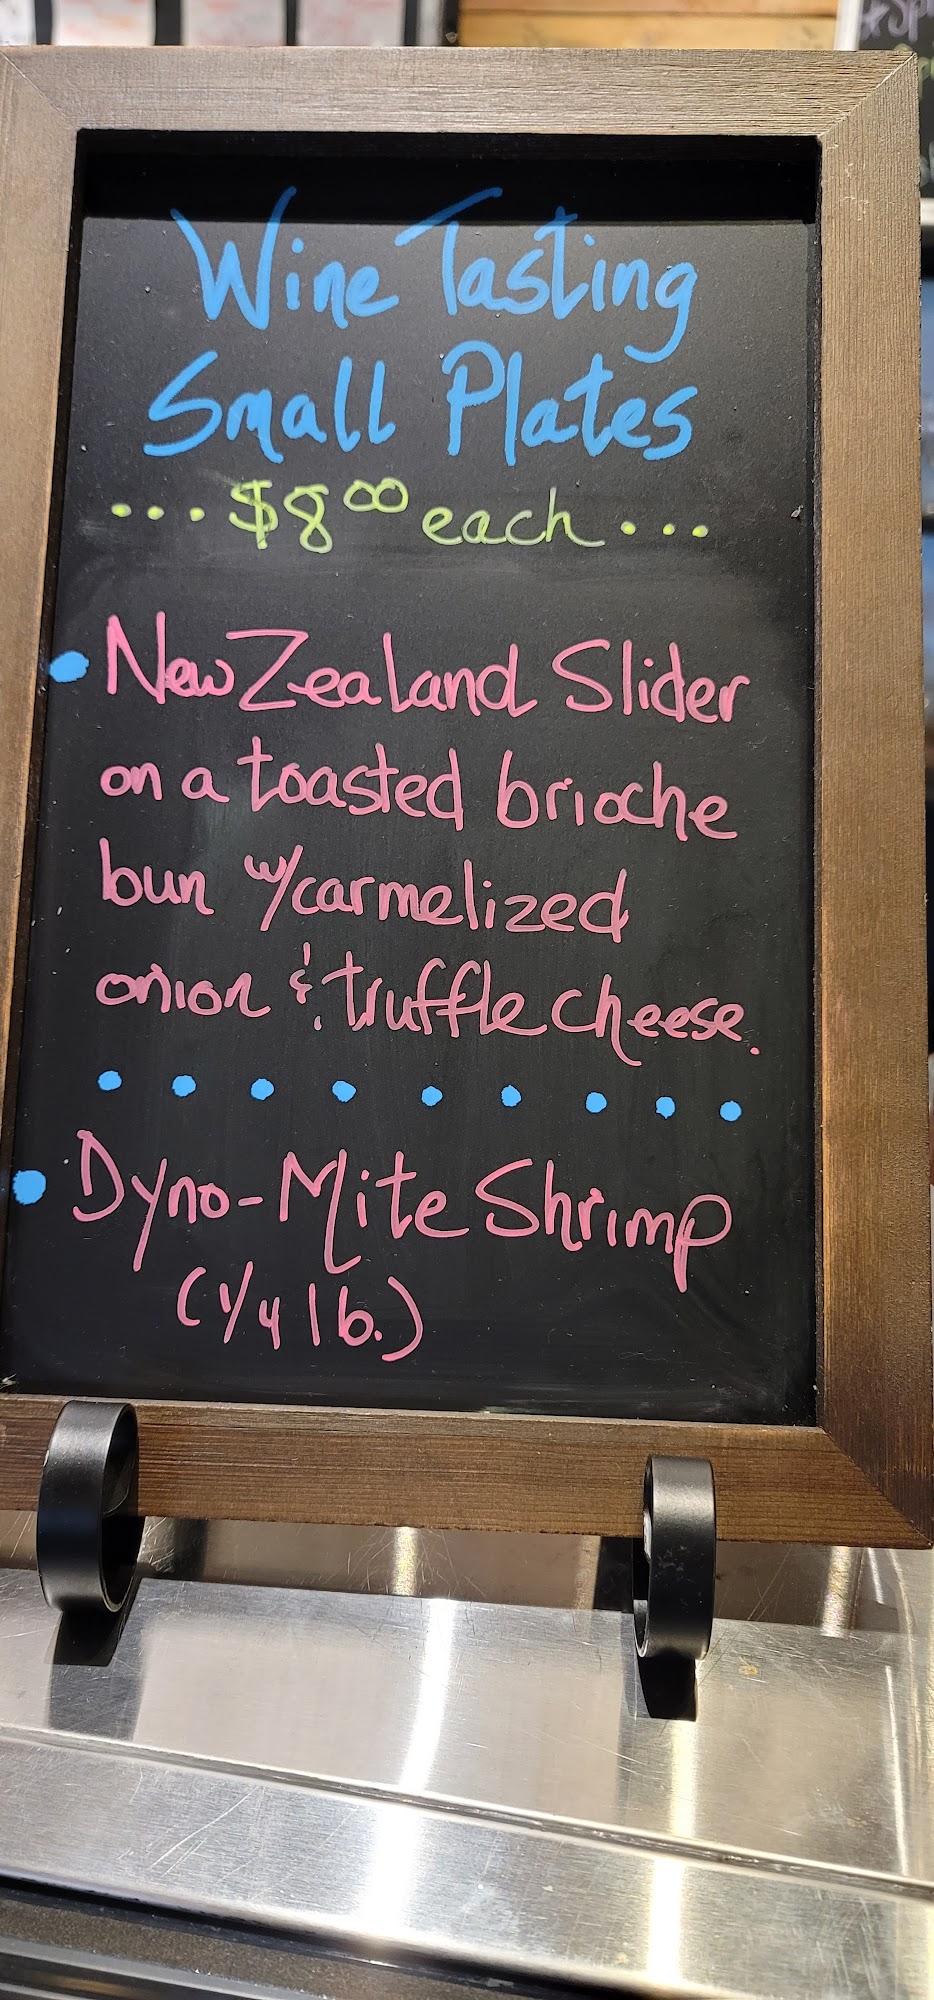 Wine Tasting
Small Plates
... $8.00 each ...
• New Zealand Slider
on a toasted brioche
bun w/carmelized
onion & truffle cheese.
• Dyno-Mite Shrimp
(1/4 lb.)